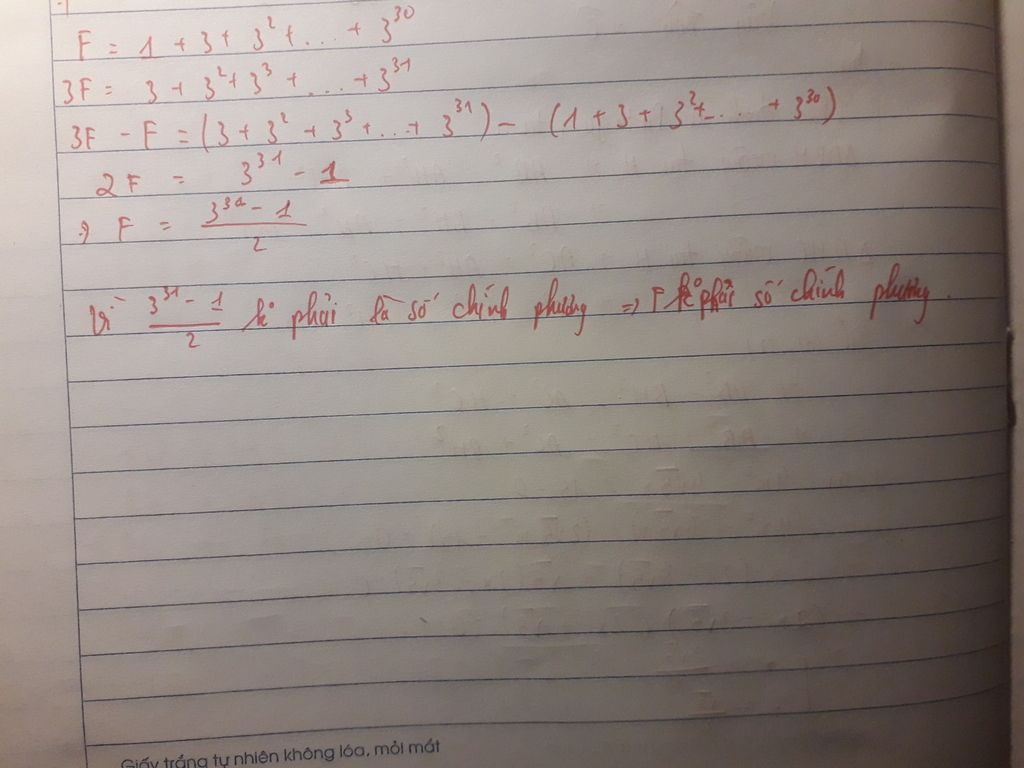 F = 1 + 3 + 3² + ... + 3³⁰
3F = 3 + 3² + 3³ + ... + 3³¹
3F - F = (3 + 3² + 3³ + ... + 3³¹) - (1 + 3 + 3² + ... + 3³⁰)
2F = 3³¹ - 1
⇒ F = (3³¹ - 1)/2
Vì (3³¹ - 1)/2 k° phải là số chính phương ⇒ F k° phải số chính phương.
Giấy trắng tự nhiên không lóa, mỏi mắt